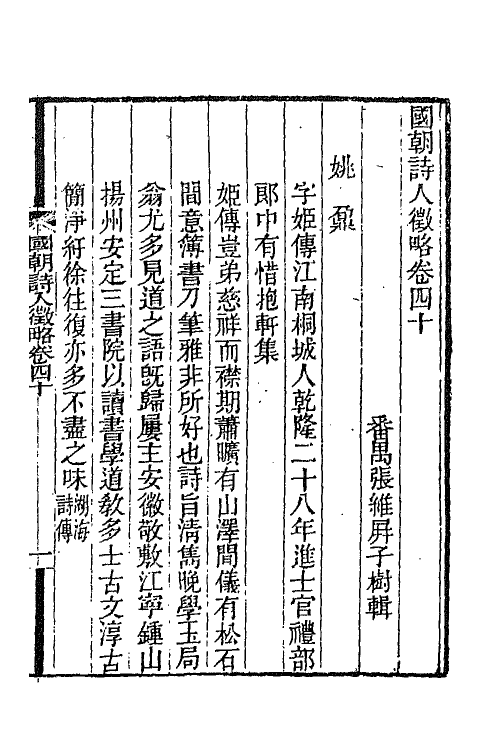 國朝詩人徵略卷四十
番禺張維屏子樹輯
姚鼐
字姬傳江南桐城人乾隆二十八年進士官禮部
郎中有惜抱軒集
姬傳豈弟慈祥而襟期蕭曠有山澤間儀有松石
間意簿書刀筆雅非所好也詩旨清雋晚學玉局
翁尤多見道之語旣歸屢主安徽敬敷江寧鍾山
揚州安定三書院以讀書學道敎多士古文淳古
簡淨紆徐往復亦多不盡之味湖海詩傳
國朝詩人徵略卷四十
一